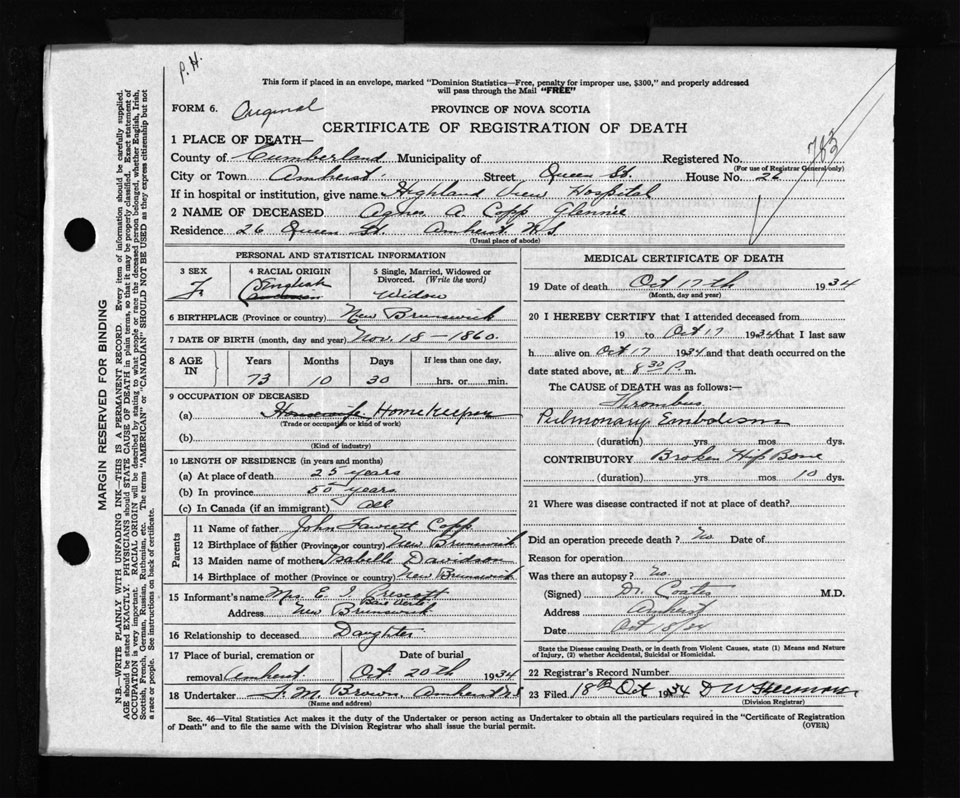 P. H.
This form if placed in an envelope, marked "Dominion Statistics—Free, penalty for improper use, $300," and properly addressed
will pass through the Mail "FREE"
FORM 6. Original PROVINCE OF NOVA SCOTIA
CERTIFICATE OF REGISTRATION OF DEATH
783
1 PLACE OF DEATH—
County of Cumberland Municipality of Registered No.
(For use of Registrar General only)
City or Town Amherst Street Queen St. House No. 26
If in hospital or institution, give name Highland View Hospital
2 NAME OF DECEASED Agnes A. Copp Glennie
Residence 26 Queen St. Amherst N.S.
(Usual place of abode)
PERSONAL AND STATISTICAL INFORMATION
3 SEX 4 RACIAL ORIGIN 5 Single, Married, Widowed or
Divorced. (Write the word)
F. English Widow
6 BIRTHPLACE (Province or country) New Brunswick
7 DATE OF BIRTH (month, day and year) Nov. 18 - 1860.
8 AGE IN Years Months Days If less than one day.
73 10 30 hrs. or min.
9 OCCUPATION OF DECEASED
(a) Housewife Homekeeper
(Trade or occupation or kind of work)
(b)
(Kind of industry)
10 LENGTH OF RESIDENCE (in years and months)
(a) At place of death 25 years
(b) In province 50 years
(c) In Canada (if an immigrant) All
Parents
11 Name of father John Fawcett Copp
12 Birthplace of father (Province or country) New Brunswick
13 Maiden name of mother Isabelle Davidson
14 Birthplace of mother (Province or country) New Brunswick
15 Informant's name Mrs E. I. Prescott
Baie Verte
Address New Brunswick
16 Relationship to deceased Daughter
17 Place of burial, cremation or Date of burial
removal Amherst Oct 20th 1934
18 Undertaker F. M. Brown Amherst N.S
(Name and address)
MEDICAL CERTIFICATE OF DEATH
19 Date of death Oct 17th 1934
(Month, day and year)
20 I HEREBY CERTIFY that I attended deceased from
19 to Oct 17 1934 that I last saw
h alive on Oct 17 1934 and that death occurred on the
date stated above, at 8 30 P.m.
The CAUSE of DEATH was as follows:—
Thrombus
Pulmonary Embolism
(duration) yrs. mos. dys.
CONTRIBUTORY Broken Hip Bone
(duration) yrs. mos. 10 dys.
21 Where was disease contracted if not at place of death?
Did an operation precede death? No Date of
Reason for operation
Was there an autopsy? No.
(Signed) Dr. Coates M.D.
Address Amherst
Date Oct 18/34
State the Disease causing Death, or in death from Violent Causes, state (1) Means and Nature
of Injury, (2) whether Accidental, Suicidal or Homicidal.
22 Registrar's Record Number
23 Filed 18th Oct 1934
(Division Registrar)
Sec. 46—Vital Statistics Act makes it the duty of the Undertaker or person acting as Undertaker to obtain all the particulars required in the "Certificate of Registration
of Death" and to file the same with the Division Registrar who shall issue the burial permit. (OVER)
MARGIN RESERVED FOR BINDING
N.B.—WRITE PLAINLY WITH UNFADING INK—THIS IS A PERMANENT RECORD. Every item of information should be carefully supplied.
AGE should be stated EXACTLY. PHYSICIANS should STATE CAUSE OF DEATH in plain terms, so that it may be properly classified. Exact statement of
OCCUPATION is very important. RACIAL ORIGIN will be described by stating to what people or race the deceased person belonged, whether English, Irish,
Scottish, French, German, Russian, Ruthenian, etc. The terms "AMERICAN" or "CANADIAN" SHOULD NOT BE USED as they express citizenship but not
a race or people. See instructions on back of certificate.